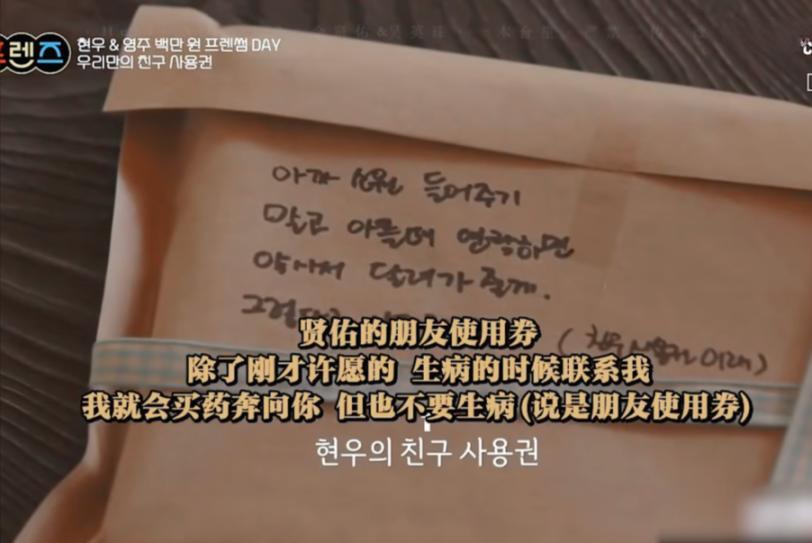 프렌즈
현우 & 영주 백만 원 프렌썸 DAY
우리만의 친구 사용권
아까 소원 들어주기
말고 아플때 연락하면
약사서 달려가 줄게.
贤佑的朋友使用券
除了刚才许愿的 生病的时候联系我
我就会买药奔向你 但也不要生病(说是朋友使用券)
현우의 친구 사용권